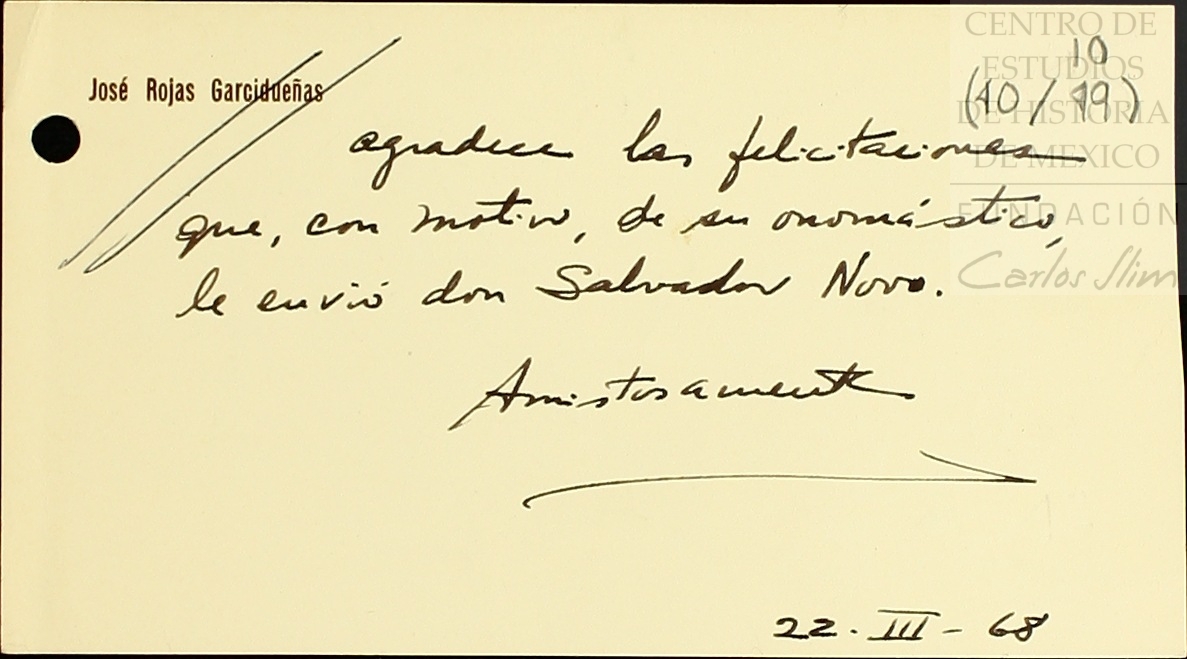 José Rojas Garcidueñas
10
(40/49)
agradece las felicitaciones
que, con motivo, de su onomástico,
le envió don Salvador Novo.
Amistosamente
22. III - 68
CENTRO DE
ESTUDIOS
DE HISTORIA
DE MEXICO
FUNDACIÓN
Carlos Slim